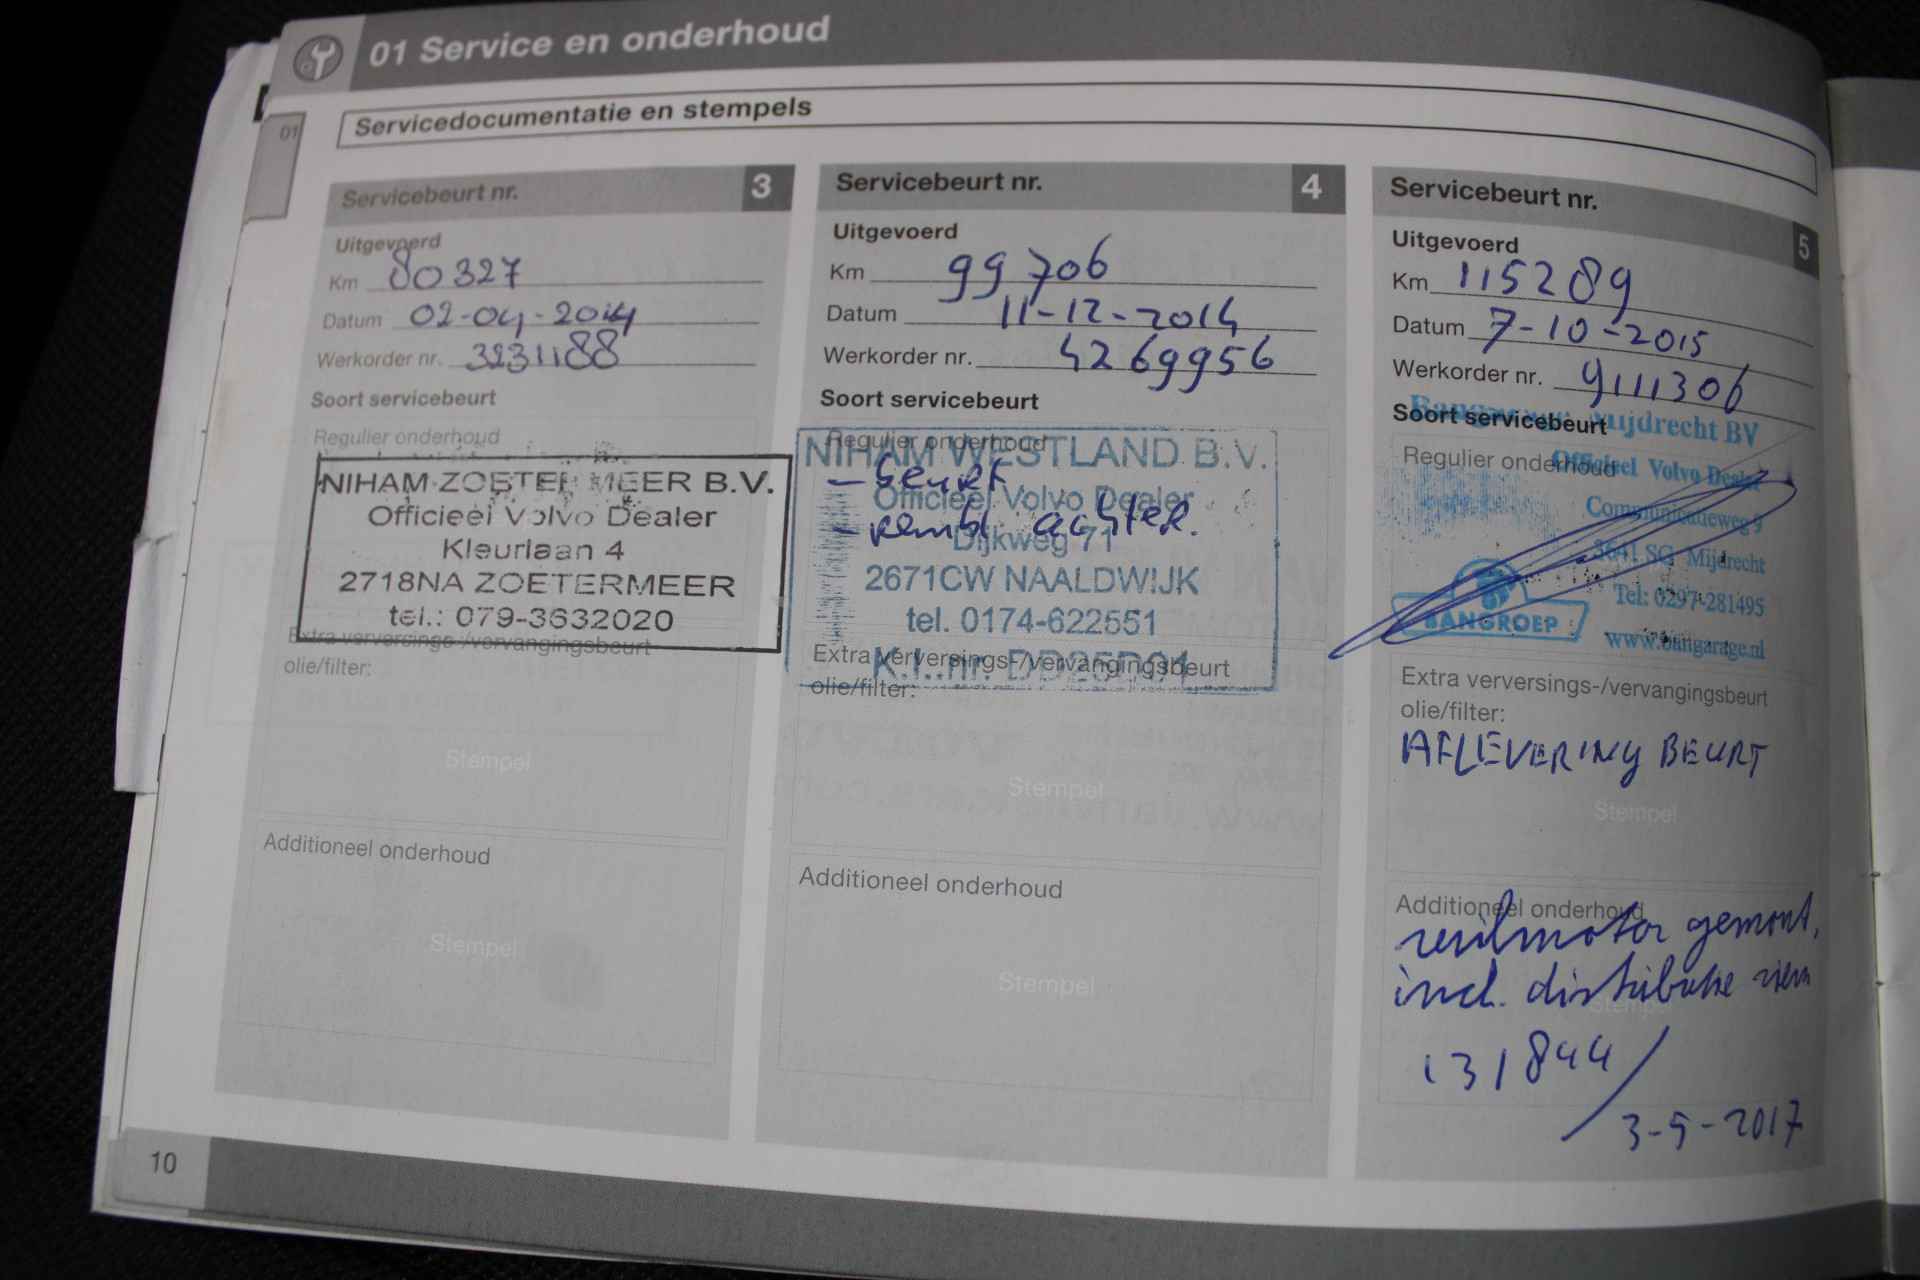 01 Service en onderhoud
01
Servicedocumentatie en stempels
Servicebeurt nr. 3
Uitgevoerd
Km 80327
Datum 02-04-2014
Werkorder nr. 3231188
Soort servicebeurt
Regulier onderhoud
NIHAM ZOETERMEER B.V.
Officieel Volvo Dealer
Kleurlaan 4
2718NA ZOETERMEER
tel.: 079-3632020
Extra verversings-/vervangingsbeurt
olie/filter:
Stempel
Additioneel onderhoud
Stempel
Servicebeurt nr. 4
Uitgevoerd
Km 99706
Datum 11-12-2014
Werkorder nr. 4269956
Soort servicebeurt
Regulier onderhoud
NIHAM WESTLAND B.V.
- Beurt
Officieel Volvo Dealer
- rembl. achter.
Dijkweg 71
2671CW NAALDWIJK
tel. 0174-622551
Extra verversings-/vervangingsbeurt
K.I. nr. DD25D01
olie/filter:
Stempel
Additioneel onderhoud
Stempel
Servicebeurt nr. 5
Uitgevoerd
Km 115289
Datum 7-10-2015
Werkorder nr. 9111306
Mijdrecht BV
Soort servicebeurt
Regulier onderhoud
Officieel Volvo Dealer
Communicatieweg 9
3641 SG Mijdrecht
Tel: 0297-281495
BANGROEP
www.bangarage.nl
Extra verversings-/vervangingsbeurt
olie/filter:
AFLEVERING BEURT
Stempel
Additioneel onderhoud
ruilmotor gemont.
incl. distributie riem
Stempel
131844 /
3-5-2017
10